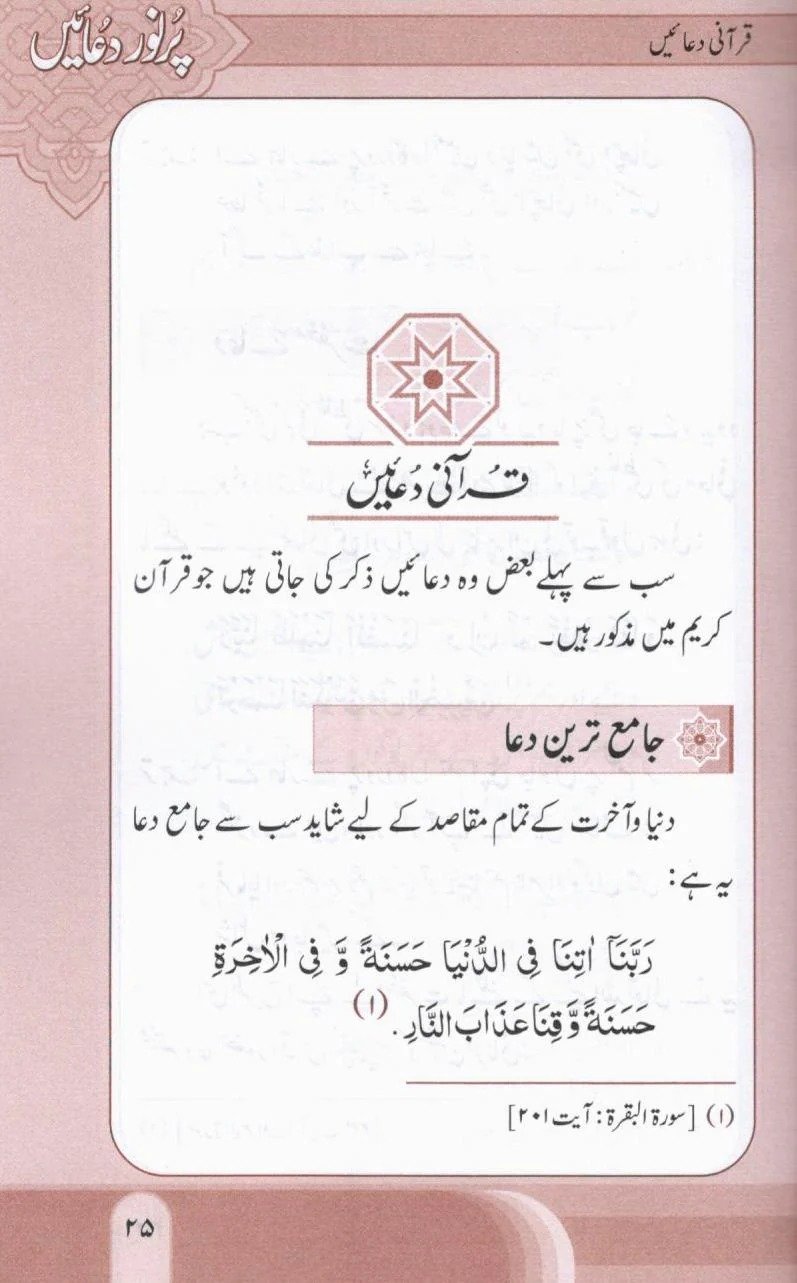 قرآنی دعائیں
پُرنور دُعائیں
قُرآنی دُعائیں
سب سے پہلے بعض وہ دعائیں ذکر کی جاتی ہیں جو قرآن
کریم میں مذکور ہیں۔
جامع ترین دعا
دنیا وآخرت کے تمام مقاصد کے لیے شاید سب سے جامع دعا
یہ ہے:
رَبَّنَاۤ اٰتِنَا فِی الدُّنْیَا حَسَنَةً وَّ فِی الْاٰخِرَةِ
حَسَنَةً وَّقِنَا عَذَابَ النَّارِ. (۱)
(۱) [سورۃ البقرۃ: آیت ۲۰۱]
۲۵